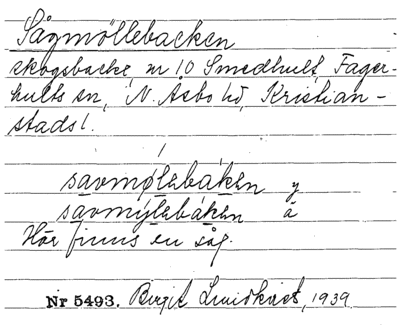 Sågmöllebacken
skogsbacke, nr 10 Smedhult, Fager-
hults sn, N. Åsbo hd, Kristian-
stads l.
savmølebákən y
savmýlebákən ä
Här finns en såg.
Nr 5493. Birgit Lundkvist, 1939